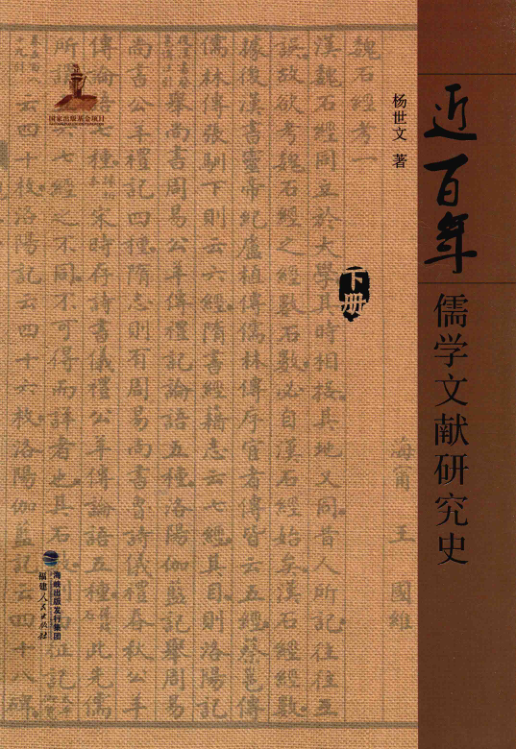 近百年
儒学文献研究史
下册
杨世文 著
国家出版基金项目
海峡出版发行集团
福建人民出版社
魏石經考一
海甯 王 國維
漢魏石經同立於大學其時相接其地又同昔人所記往往互
誤故欲考魏石經之經數石數必自漢石經始矣漢石經經數
據後漢書靈帝紀盧植傳儒林傳序宦者傳皆云五經蔡邕傳
儒林傳張馴下則云六經隋書經籍志云七經其目則洛陽記
舉尚書周易公羊傳禮記論語五種洛陽伽藍記舉周易
尚書公羊禮記四種隋志則有周易尚書魯詩儀禮春秋公羊
傳論語七種宋時存詩書儀禮公羊傳論語五種
此先儒
所謂
七經之不同不可得而詳者也其石
征記
云四十枚洛陽記云四十六枚洛陽伽藍記云四十八碑